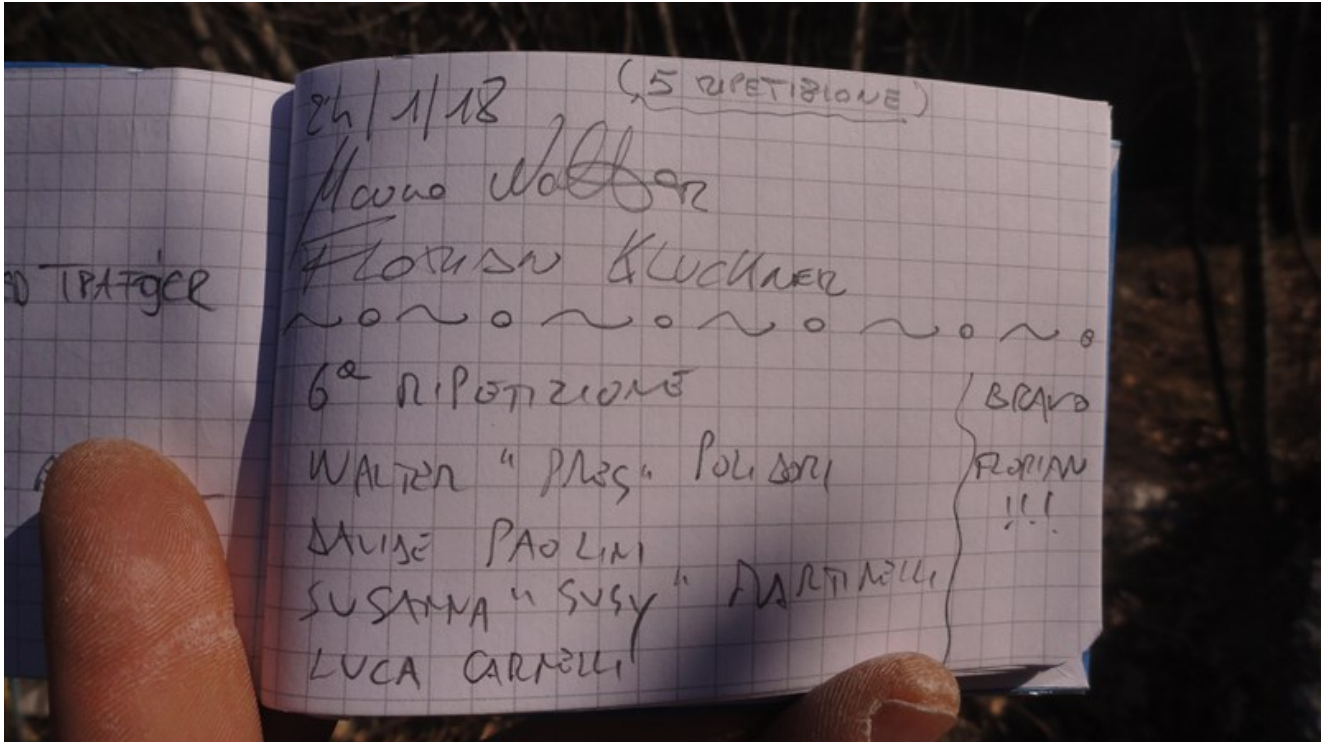 TRATGER
24/1/18 (5 RIPETIZIONE)
Walter
FLORIAN KLUCKNER
6a RIPETIZIONE
WALTER "PRES" POLIDORI
DAVIDE PAOLINI
SUSANNA "SUSY" MARTINELLI
LUCA CARNELLI
BRAVO
FLORIAN
!!!